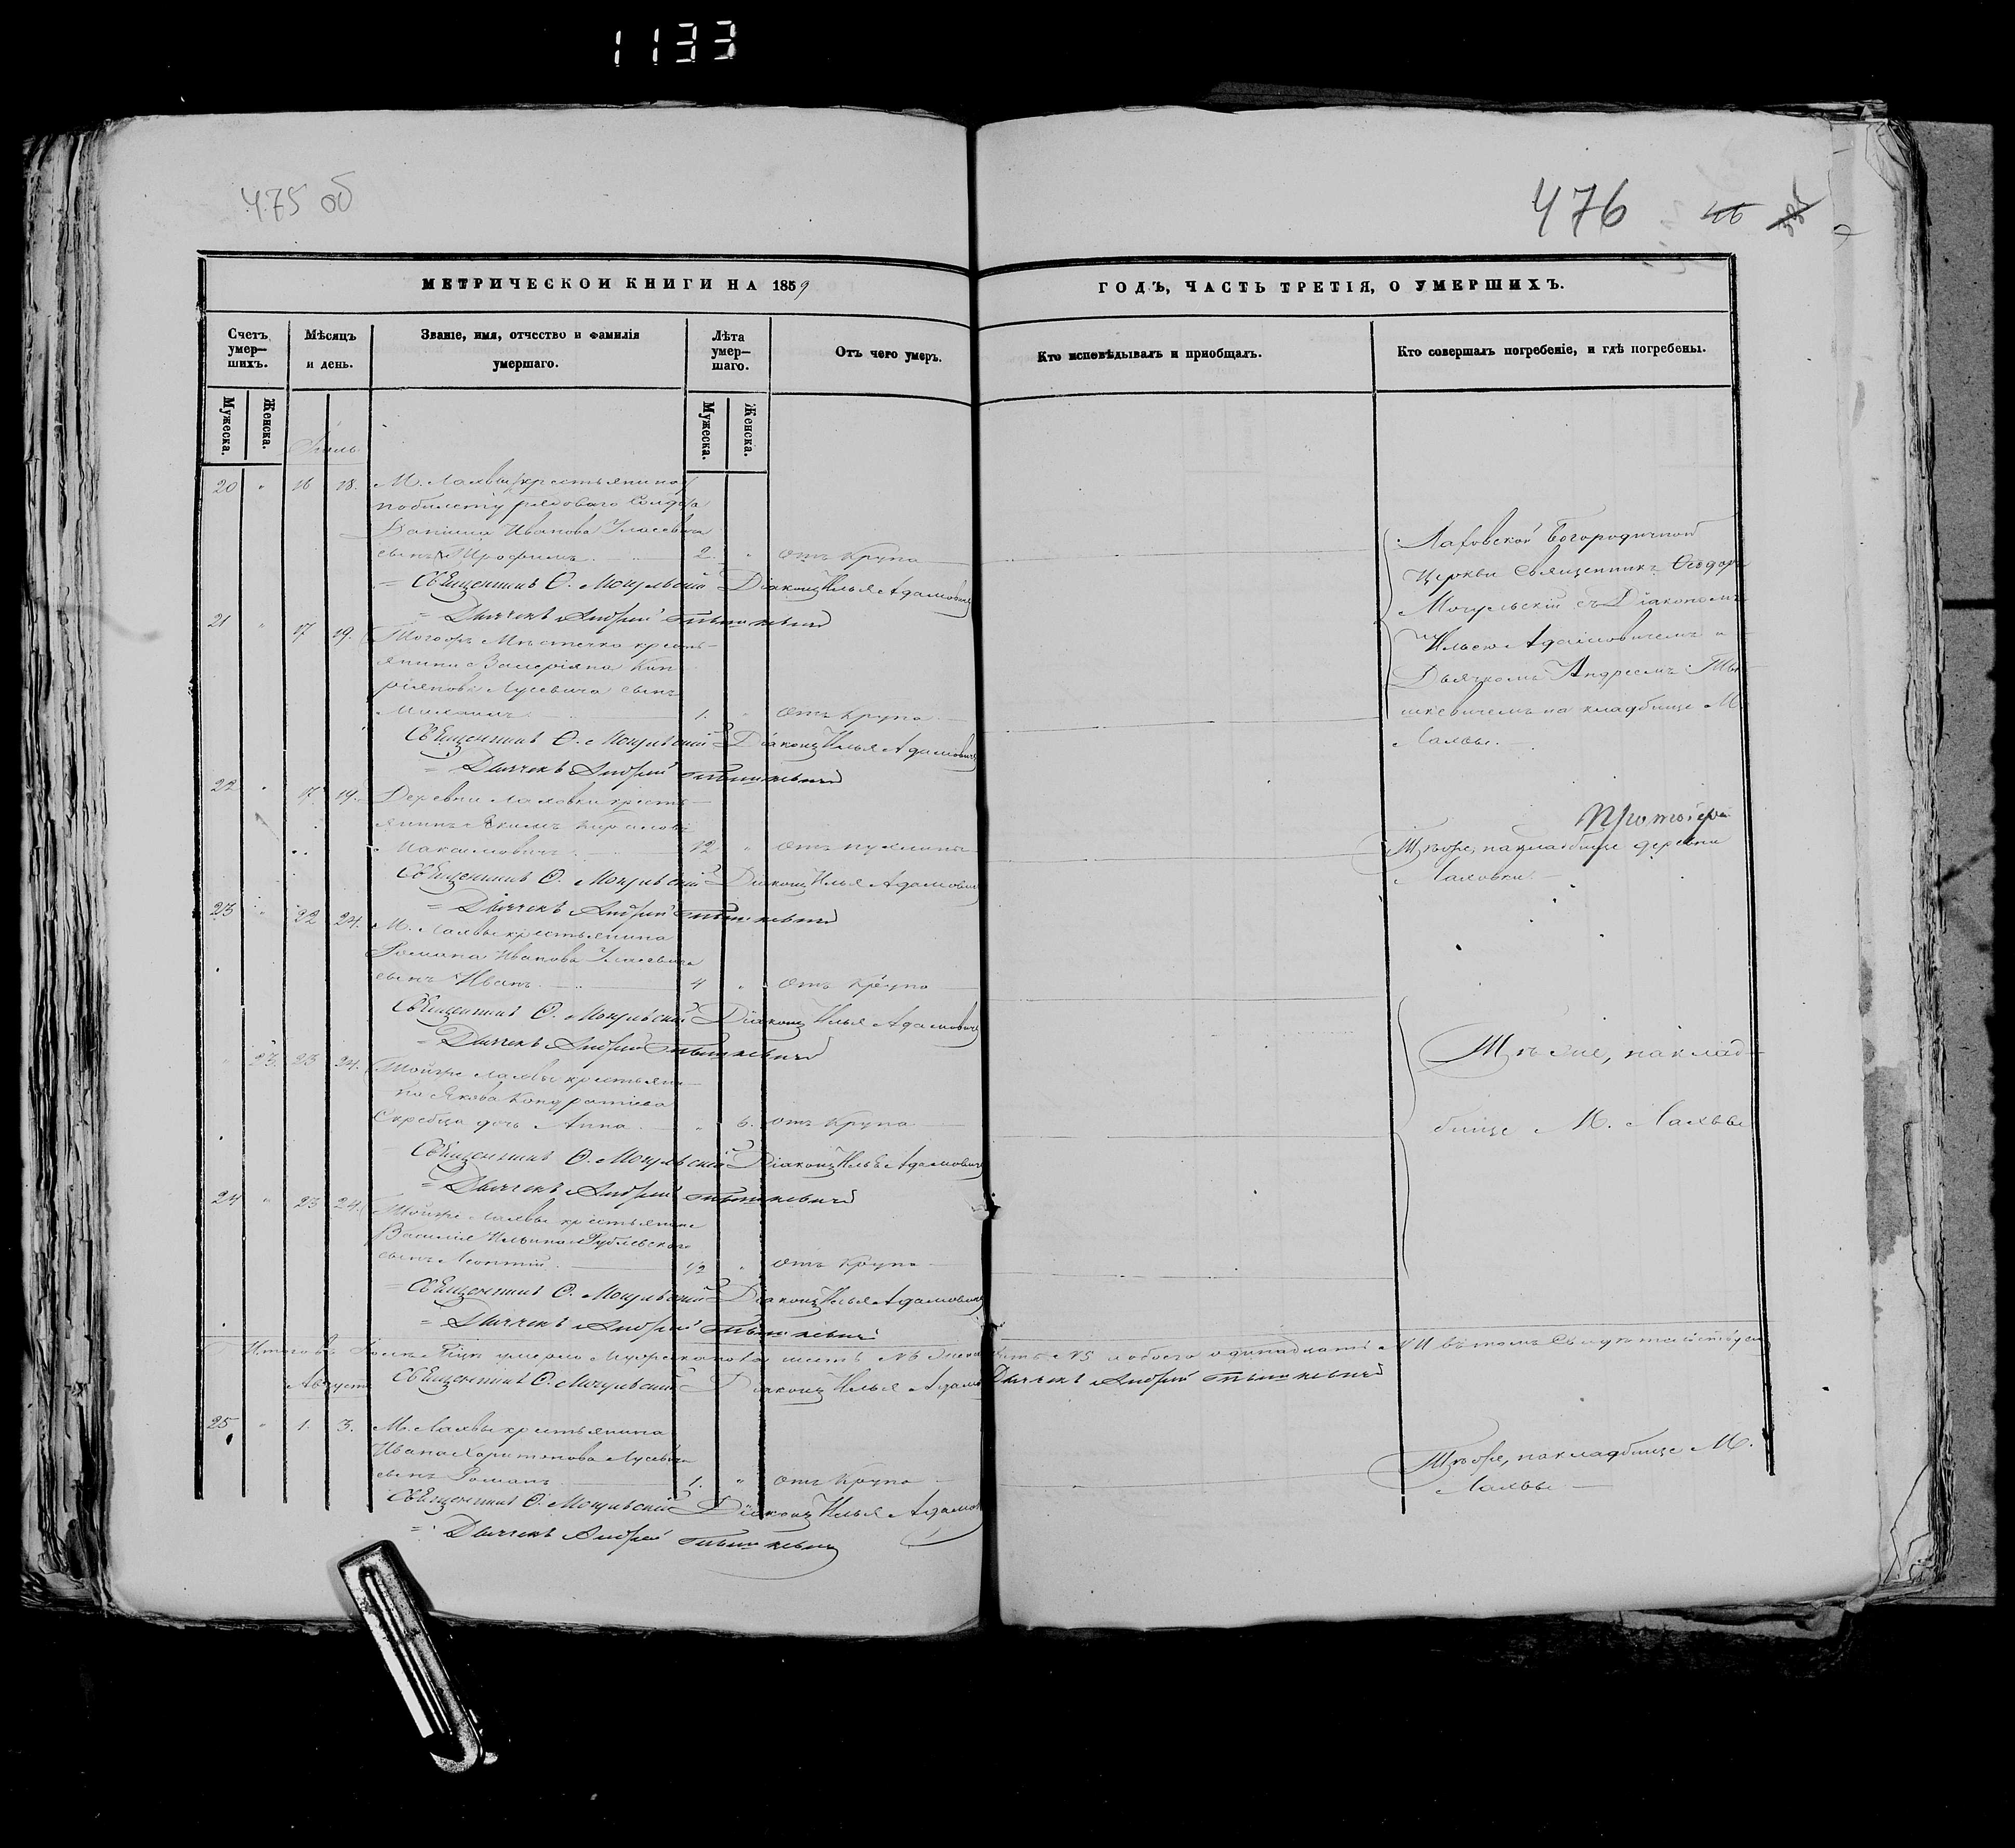 1133
475 об
476
46
МЕТРИЧЕСКОЙ КНИГИ НА 1859
ГОДЪ, ЧАСТЬ ТРЕТІЯ, О УМЕРШИХЪ.
Счетъ умер— шихъ.
Мѣсяцъ и день.
Званіе, имя, отчество и фамилія умершаго.
Лѣта умер— шаго.
Отъ чего умеръ.
Кто исповѣдывалъ и пріобщалъ.
Кто совершалъ погребеніе, и гдѣ погребены.
Мужеска.
Женска.
Мужеска.
Женска.
Іюль
20 " 16 18. М. Лахвы крестьянина
по билету рядоваго Солдата
Даніила Иванова
сынъ 2. " Отъ Крупа
Священникъ Ѳ. Могульскій Діаконъ Илья Адамовичъ
= Дьячекъ Андрей Тышкевичъ
Лаховской Богородичной
Церкви Священникъ Ѳеодоръ
Могульскій съ Діакономъ
Ильею Адамовичемъ и
Дьячкомъ Андреемъ Ты-
шкевичемъ на кладбище М.
Лахвы.
21 " 17 19. Тогоже Мѣстечка кресть-
янина Валеріяна Кип
ріянова Лусевича сынъ
Михаилъ 1. " Отъ Крупа
Священникъ Ѳ. Могульскій Діаконъ Илья Адамовичъ
= Дьячекъ Андрей Тышкевичъ
22 " 17. 19. Деревни Лаховки кресть-
янинъ Якимъ
Максимовичъ 12 " Отъ пухлины
Священникъ Ѳ. Могульскій Діаконъ Илья Адамовичъ
= Дьячекъ Андрей Тышкевичъ
Тѣже, на кладбище деревни
Лаховки.
23 " 22 24. М. Лахвы крестьянина
Романа Иванова
сынъ Иванъ 4 " Отъ Крупа
Священникъ Ѳ. Могульскій Діаконъ Илья Адамовичъ
= Дьячекъ Андрей Тышкевичъ
Тѣже, на клад-
бище М. Лахвы
" 23. 23 24. Тойже Лахвы крестьяни-
на Якова Кондратіева
Скребца дочь Анна " 6. Отъ Крупа
Священникъ Ѳ. Могульскій Діаконъ Илья Адамовичъ
= Дьячекъ Андрей Тышкевичъ
24 " 23 24. Тойже Лахвы крестьянина
Василія Ильина
сынъ Леонтій 1/2 " Отъ Крупа
= Священникъ Ѳ. Могульскій Діаконъ Илья Адамовичъ
= Дьячекъ Андрей Тышкевичъ
Священникъ Ѳ. Могульскій Діаконъ Илья Адамов Дьячекъ Андрей Тышкевичъ
Августъ
25 " 1. 3. М. Лахвы крестьянина
Ивана Харитонова Лусевича
сынъ Романъ 1. " Отъ Крупа
Священникъ Ѳ. Могульскій Діаконъ Илья Адамов
= Дьячекъ Андрей Тышкевичъ
Тѣже, на кладбище М.
Лахвы